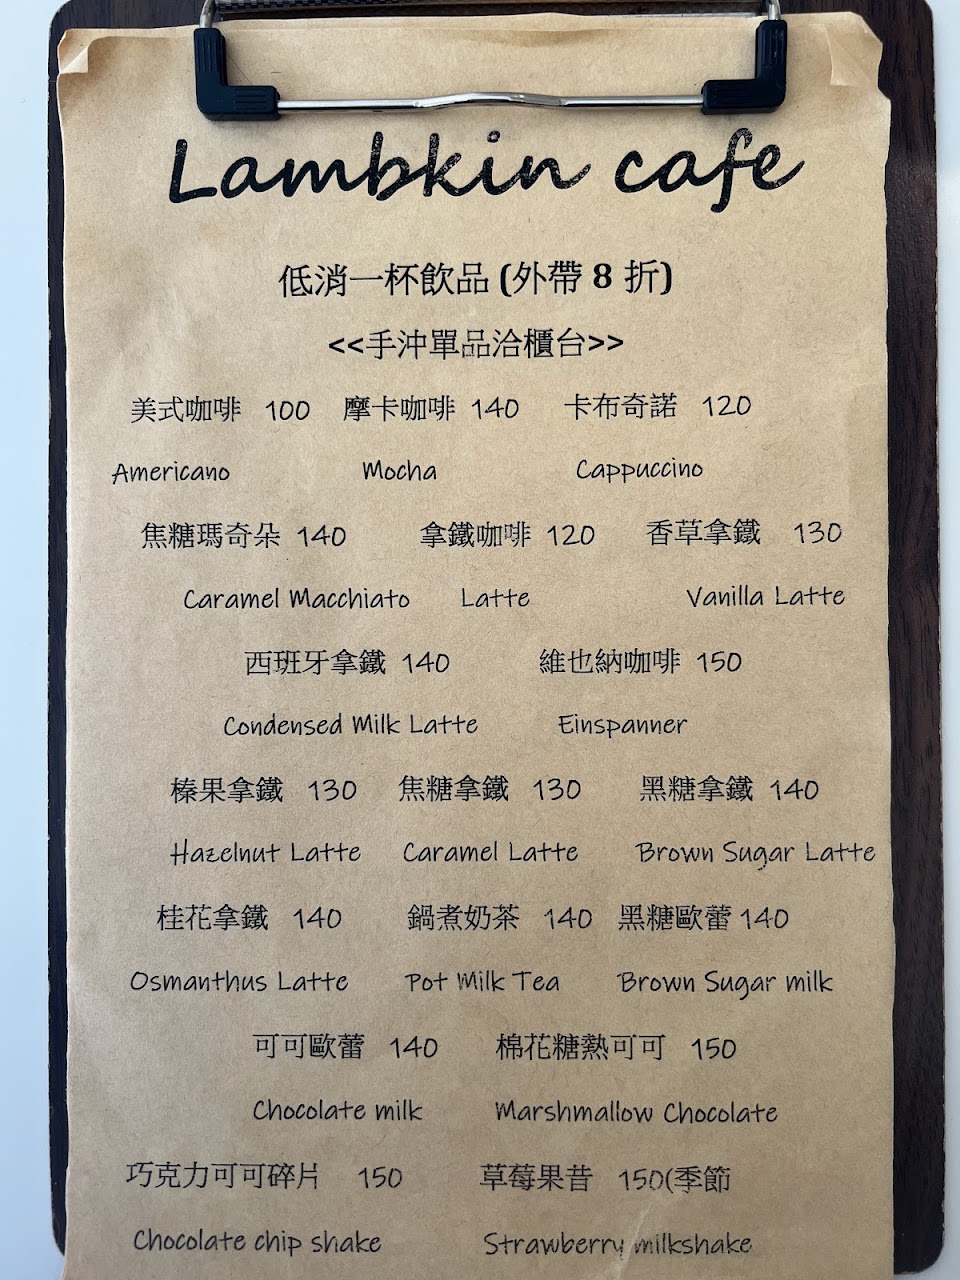 Lambkin cafe
低消一杯飲品 (外帶 8 折)
<<手沖單品洽櫃台>>
美式咖啡 100 摩卡咖啡 140 卡布奇諾 120
Americano Mocha Cappuccino
焦糖瑪奇朵 140 拿鐵咖啡 120 香草拿鐵 130
Caramel Macchiato Latte Vanilla Latte
西班牙拿鐵 140 維也納咖啡 150
Condensed Milk Latte Einspanner
榛果拿鐵 130 焦糖拿鐵 130 黑糖拿鐵 140
Hazelnut Latte Caramel Latte Brown Sugar Latte
桂花拿鐵 140 鍋煮奶茶 140 黑糖歐蕾 140
Osmanthus Latte Pot Milk Tea Brown Sugar milk
可可歐蕾 140 棉花糖熱可可 150
Chocolate milk Marshmallow Chocolate
巧克力可可碎片 150 草莓果昔 150(季節
Chocolate chip shake Strawberry milkshake